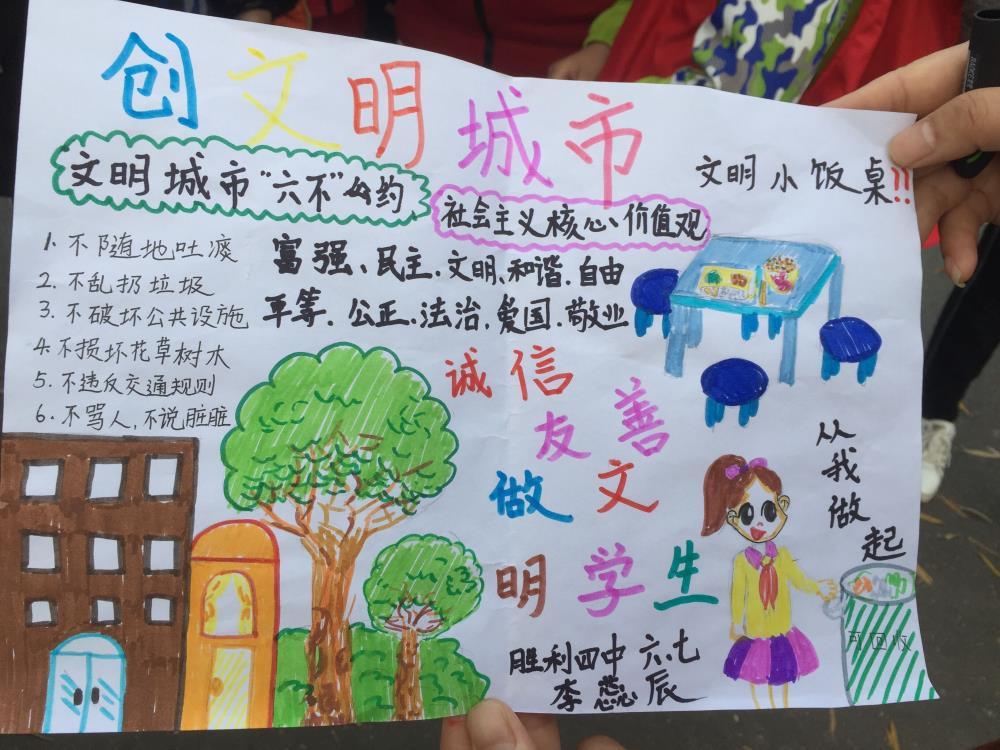 创文明城市
文明城市"六不"公约
1. 不随地吐痰
2. 不乱扔垃圾
3. 不破坏公共设施
4. 不损坏花草树木
5. 不违反交通规则
6. 不骂人,不说脏脏
社会主义核心价值观
富强、民主、文明、和谐、自由
平等、公正、法治、爱国、敬业
诚信
友善
做文
明学生
胜利四中 六.七
李蕊辰
文明小饭桌!!
从我做起
可回收